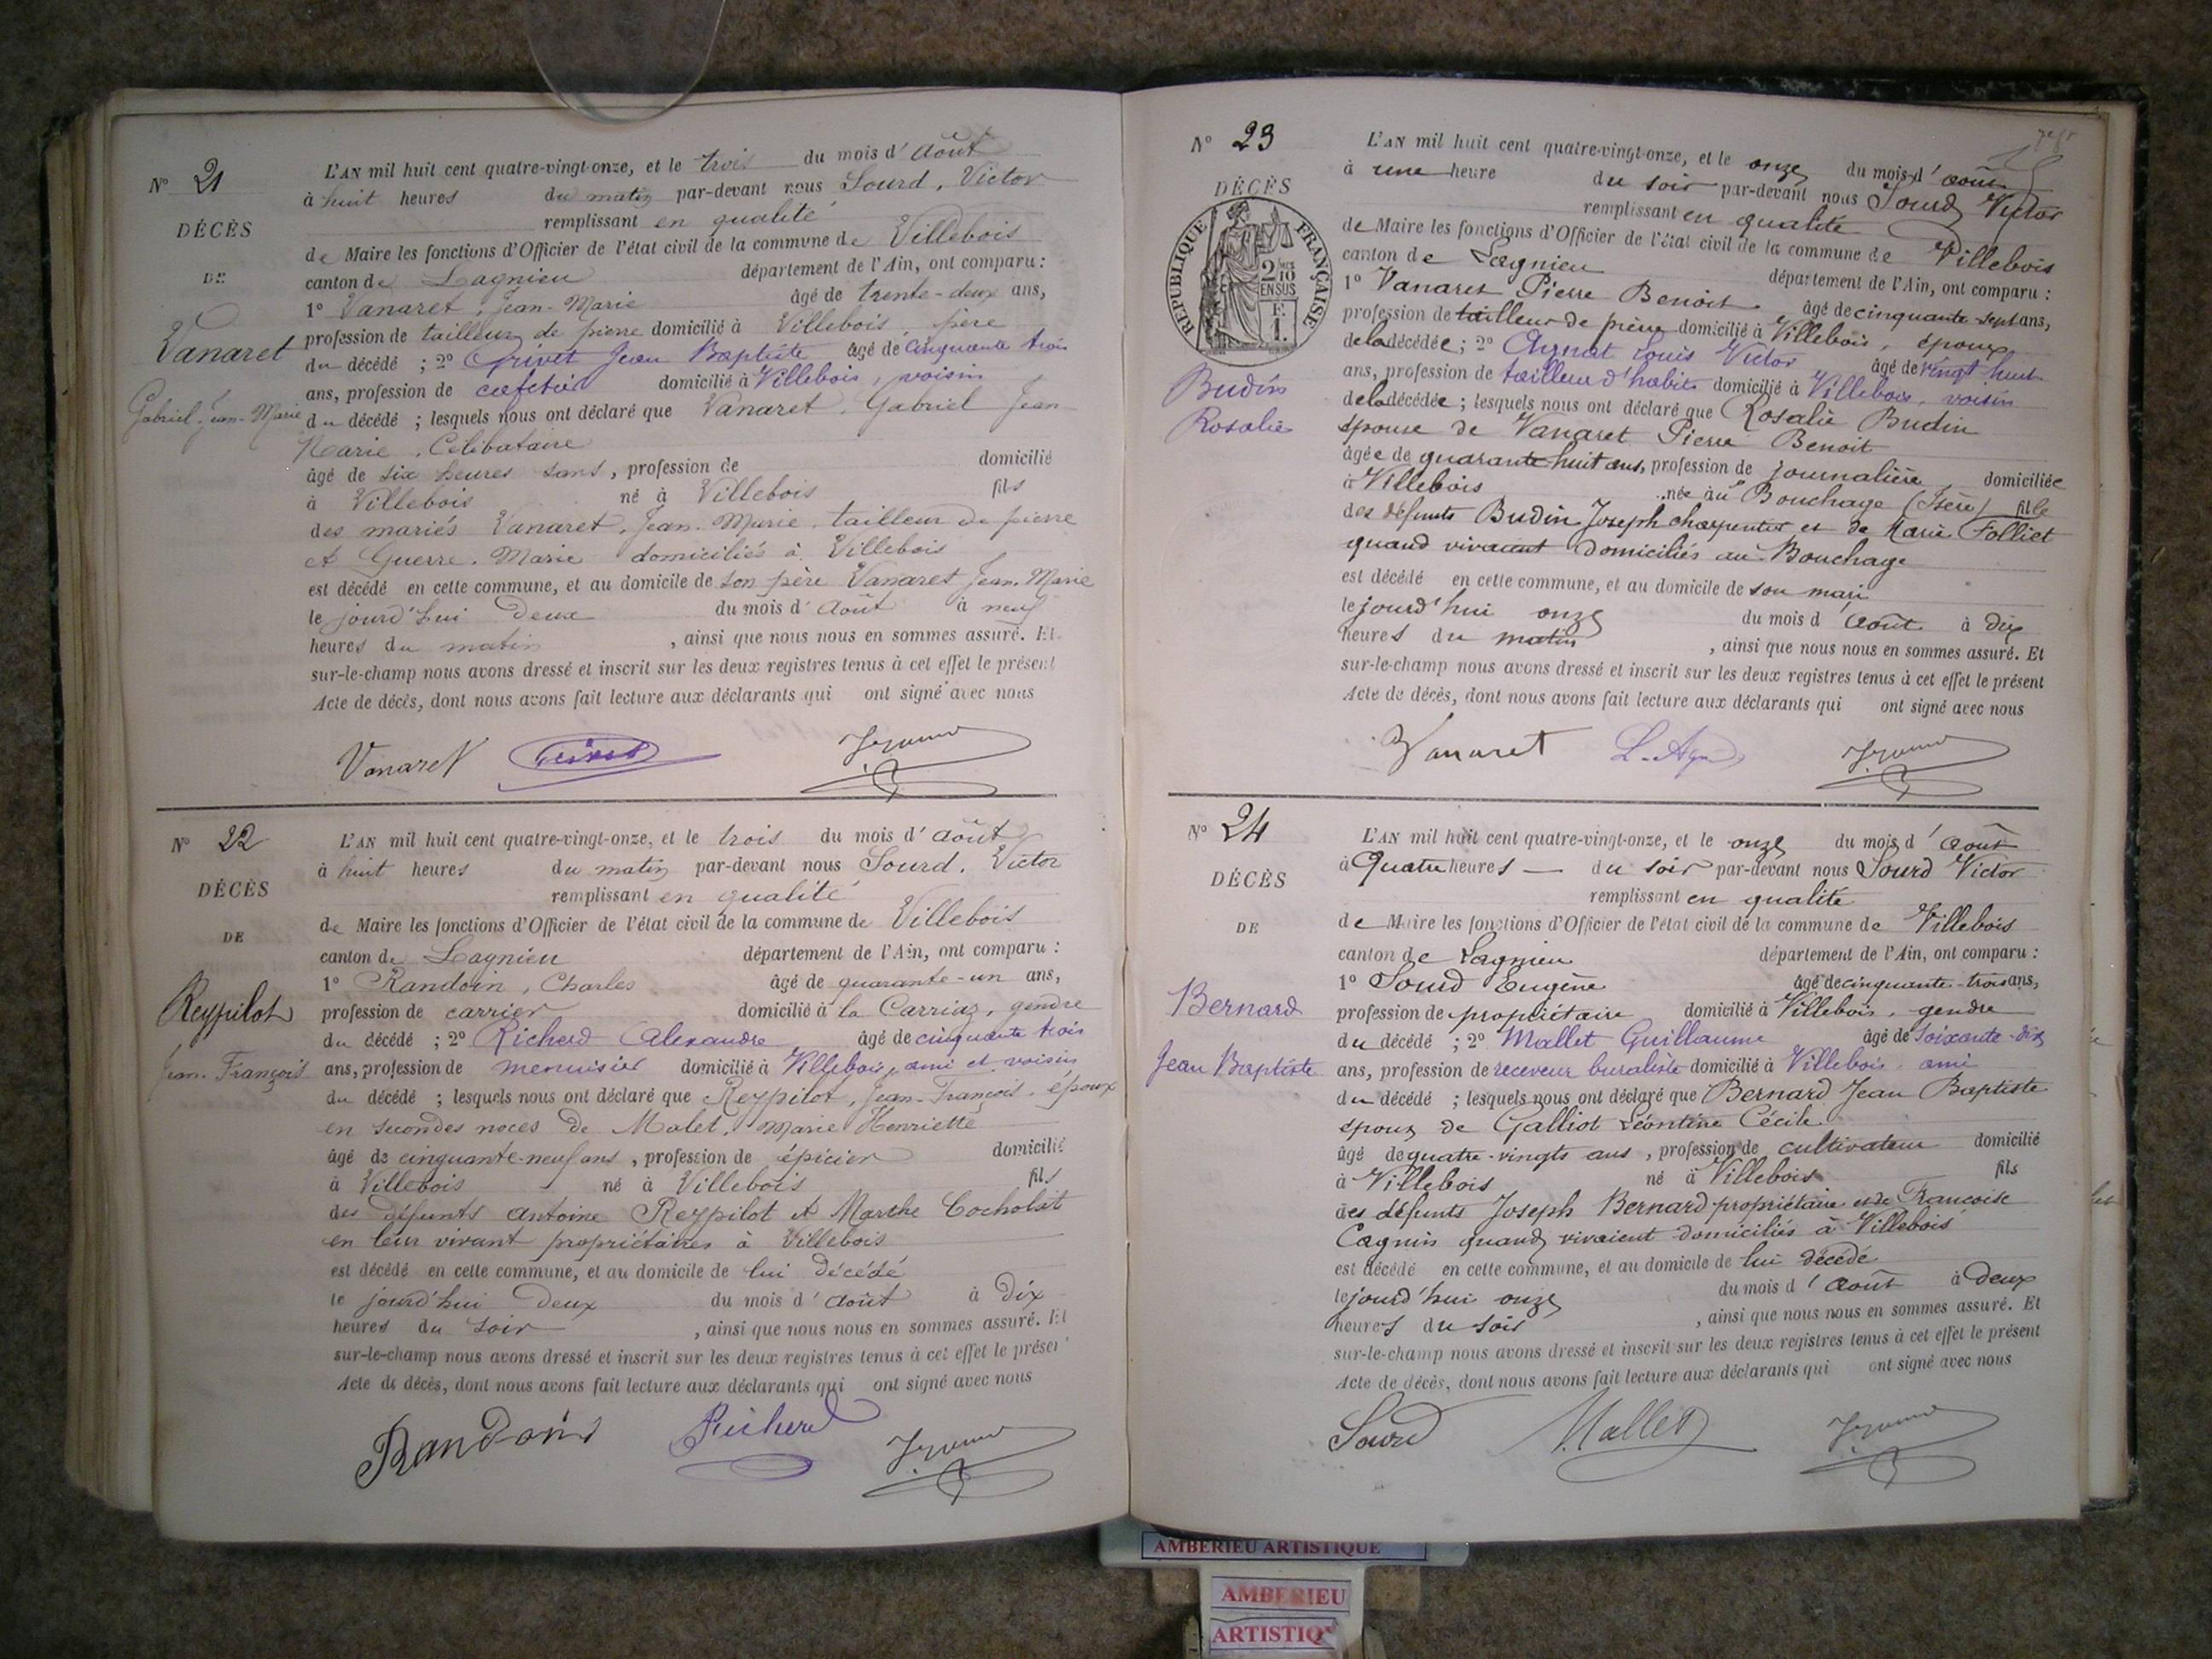 N° 21
DÉCÈS
DE
Vanaret
Gabriel-Jean-Marie
L'AN mil huit cent quatre-vingt-onze, et le trois du mois d'Août
à huit heures du matin par-devant nous Sourd, Victor
remplissant en qualité
de Maire les fonctions d'Officier de l'état civil de la commune de Villebois
canton de Lagnieu département de l'Ain, ont comparu :
1° Vanaret, Jean-Marie âgé de trente-deux ans,
profession de tailleur de pierre domicilié à Villebois, père
du décédé ; 2° Grivet Jean Baptiste âgé de cinquante trois
ans, profession de cafetier domicilié à Villebois, voisin
du décédé ; lesquels nous ont déclaré que Vanaret, Gabriel Jean
Marie, Célibataire
âgé de six heures sans, profession de domicilié
à Villebois né à Villebois fils
des mariés Vanaret, Jean-Marie, tailleur de pierre
et Guerre, Marie domiciliés à Villebois
est décédé en cette commune, et au domicile de son père Vanaret Jean-Marie
le jourd'hui deux du mois d'Août à neuf
heures du matin, ainsi que nous nous en sommes assuré. Et
sur-le-champ nous avons dressé et inscrit sur les deux registres tenus à cet effet le présent
Acte de décès, dont nous avons fait lecture aux déclarants qui ont signé avec nous
Vanaret Grivet
N° 22
DÉCÈS
DE
Reypilot
Jean-François
L'AN mil huit cent quatre-vingt-onze, et le trois du mois d'Août
à huit heures du matin par-devant nous Sourd, Victor
remplissant en qualité
de Maire les fonctions d'Officier de l'état civil de la commune de Villebois
canton de Lagnieu département de l'Ain, ont comparu :
1° Randoin, Charles âgé de quarante-un ans,
profession de carrier domicilié à la Carriaz, gendre
du décédé ; 2° Richerd Alexandre âgé de cinquante trois
ans, profession de menuisier domicilié à Villebois, ami et voisin
du décédé ; lesquels nous ont déclaré que Reypilot, Jean-François, époux
en secondes noces de Molet, Marie Henriette
âgé de cinquante-neuf ans, profession de épicier domicilié
à Villebois né à Villebois fils
des défunts Antoine Reypilot et Marthe Cocholat
en leur vivant propriétaires à Villebois
est décédé en cette commune, et au domicile de lui décédé
le jourd'hui deux du mois d'Août à dix
heures du soir, ainsi que nous nous en sommes assuré. Et
sur-le-champ nous avons dressé et inscrit sur les deux registres tenus à cet effet le présent
Acte de décès, dont nous avons fait lecture aux déclarants qui ont signé avec nous
Randoin Richerd
N° 23
DÉCÈS
RÉPUBLIQUE FRANÇAISE
2/10 EN SUS
Budin
Rosalie
L'AN mil huit cent quatre-vingt-onze, et le onze du mois d'août
à une heure du soir par-devant nous Sourd Victor
remplissant en qualité
de Maire les fonctions d'Officier de l'état civil de la commune de Villebois
canton de Lagnieu département de l'Ain, ont comparu :
1° Vanaret Pierre Benoit âgé de cinquante-sept ans,
profession de tailleur de pierre domicilié à Villebois, époux
de la décédée ; 2° Agnat Louis Victor âgé de vingt huit
ans, profession de tailleur d'habits domicilié à Villebois, voisin
de la décédée ; lesquels nous ont déclaré que Rosalie Budin
épouse de Vanaret Pierre Benoit
âgée de quarante-huit ans, profession de journalière domiciliée
à Villebois née au Bouchage (Isère) fille
des défunts Budin Joseph charpentier et de Marie Folliet
quand vivaient domiciliés au Bouchage
est décédé en cette commune, et au domicile de son mari
le jourd'hui onze du mois d'Août à dix
heures du matin, ainsi que nous nous en sommes assuré. Et
sur-le-champ nous avons dressé et inscrit sur les deux registres tenus à cet effet le présent
Acte de décès, dont nous avons fait lecture aux déclarants qui ont signé avec nous
Vanaret
N° 24
DÉCÈS
DE
Bernard
Jean Baptiste
L'AN mil huit cent quatre-vingt-onze, et le onze du mois d'août
à Quatre heures du soir par-devant nous Sourd Victor
remplissant en qualité
de Maire les fonctions d'Officier de l'état civil de la commune de Villebois
canton de Lagnieu département de l'Ain, ont comparu :
1° Sourd Eugène âgé de cinquante-trois ans,
profession de propriétaire domicilié à Villebois, gendre
du décédé ; 2° Mallet Guillaume âgé de soixante-dix
ans, profession de receveur buraliste domicilié à Villebois, ami
du décédé ; lesquels nous ont déclaré que Bernard Jean Baptiste
époux de Galliot Léontine Cécile
âgé de quatre-vingts ans, profession de cultivateur domicilié
à Villebois né à Villebois fils
des défunts Joseph Bernard propriétaire et de Françoise
Cagnin quand vivaient domiciliés à Villebois
est décédé en cette commune, et au domicile de lui décédé
le jourd'hui onze du mois d'août à deux
heures du soir, ainsi que nous nous en sommes assuré. Et
sur-le-champ nous avons dressé et inscrit sur les deux registres tenus à cet effet le présent
Acte de décès, dont nous avons fait lecture aux déclarants qui ont signé avec nous
Sourd Mallet
AMBERIEU ARTISTIQUE
AMBERIEU
ARTISTIQ